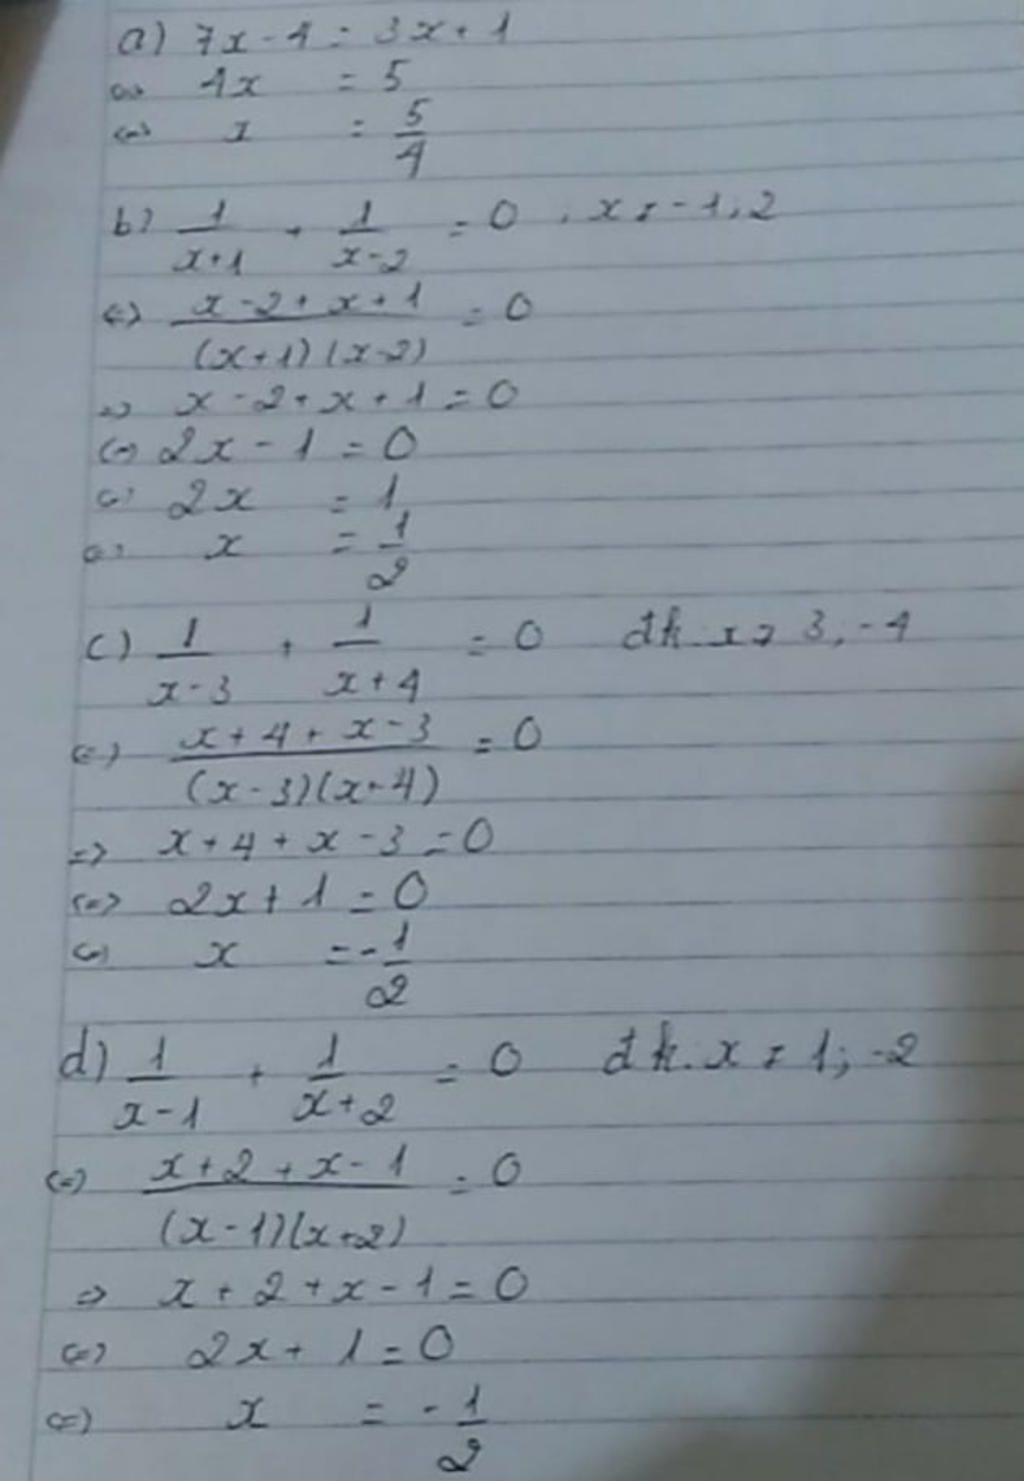 a) 7x - 4 = 3x + 1
<=> 4x = 5
<=> x = 5/4
b) 1/(x+1) + 1/(x-2) = 0 , x ≠ -1; 2
<=> (x-2+x+1)/((x+1)(x-2)) = 0
=> x - 2 + x + 1 = 0
<=> 2x - 1 = 0
<=> 2x = 1
<=> x = 1/2
c) 1/(x-3) + 1/(x+4) = 0 đk: x ≠ 3; -4
<=> (x+4+x-3)/((x-3)(x+4)) = 0
=> x + 4 + x - 3 = 0
<=> 2x + 1 = 0
<=> x = -1/2
d) 1/(x-1) + 1/(x+2) = 0 đk: x ≠ 1; -2
<=> (x+2+x-1)/((x-1)(x+2)) = 0
=> x + 2 + x - 1 = 0
<=> 2x + 1 = 0
<=> x = -1/2